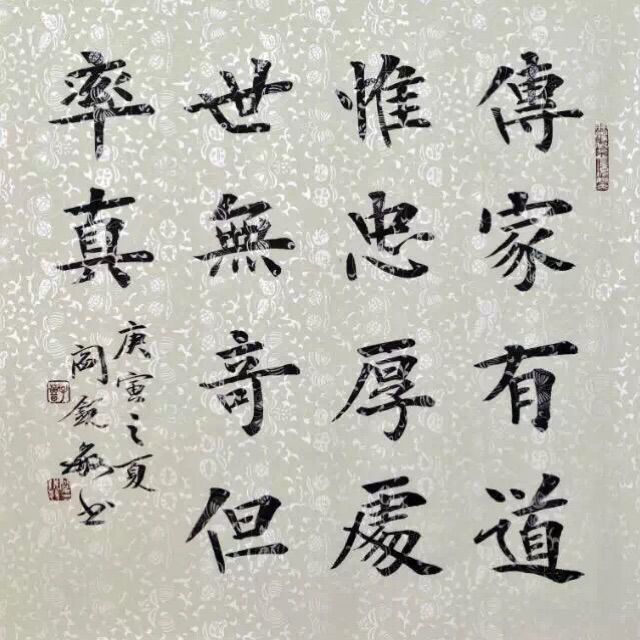 傳家有道
惟忠厚處
世無奇但
率真
庚寅之夏
閻銳敏书